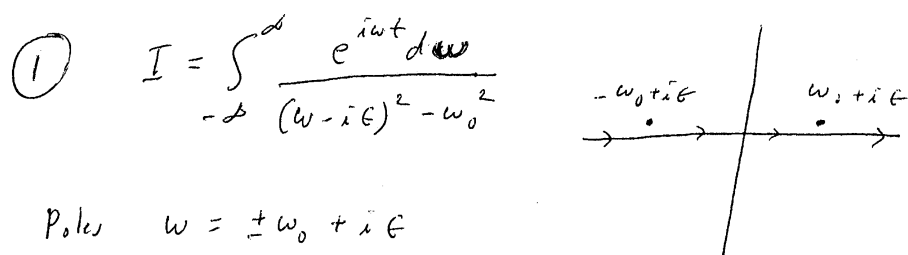 ① I = ∫_{-∞}^{∞} e^{iωt} dω / ((ω - iϵ)² - ω₀²)
-ω₀ + iϵ ω₀ + iϵ
Poles ω = ± ω₀ + iϵ